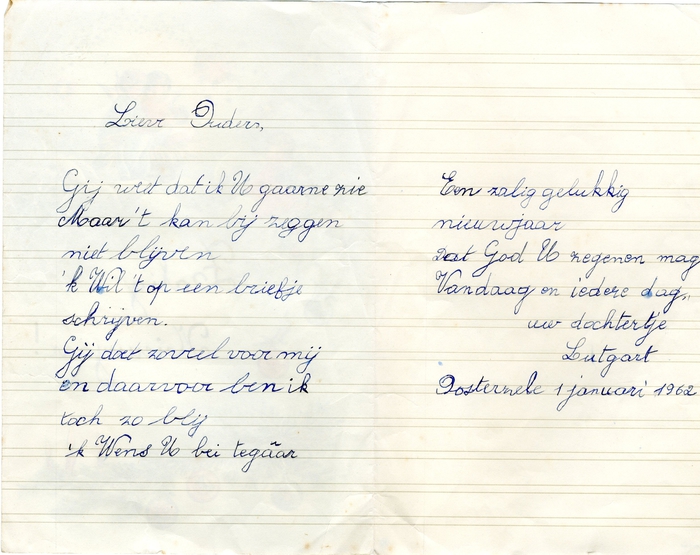 Lieve Ouders,
Gij weet dat ik U gaarne zie
Maar 't kan bij zeggen
niet blijven
'k Wil 't op een briefje
schrijven.
Gij doet zoveel voor mij
en daarvoor ben ik
toch zo blij
'k Wens U bei tegaar
Een zalig gelukkig
nieuwjaar
Dat God U zegenen mag
Vandaag en iedere dag,
uw dochtertje
Lutgart
Oosterzele 1 januari 1962